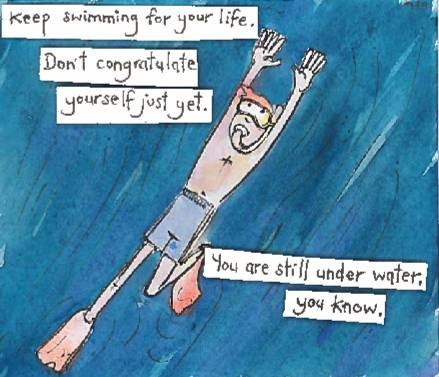 Keep swimming for your life.
Don't congratulate
yourself just yet.
You are still under water,
you know.